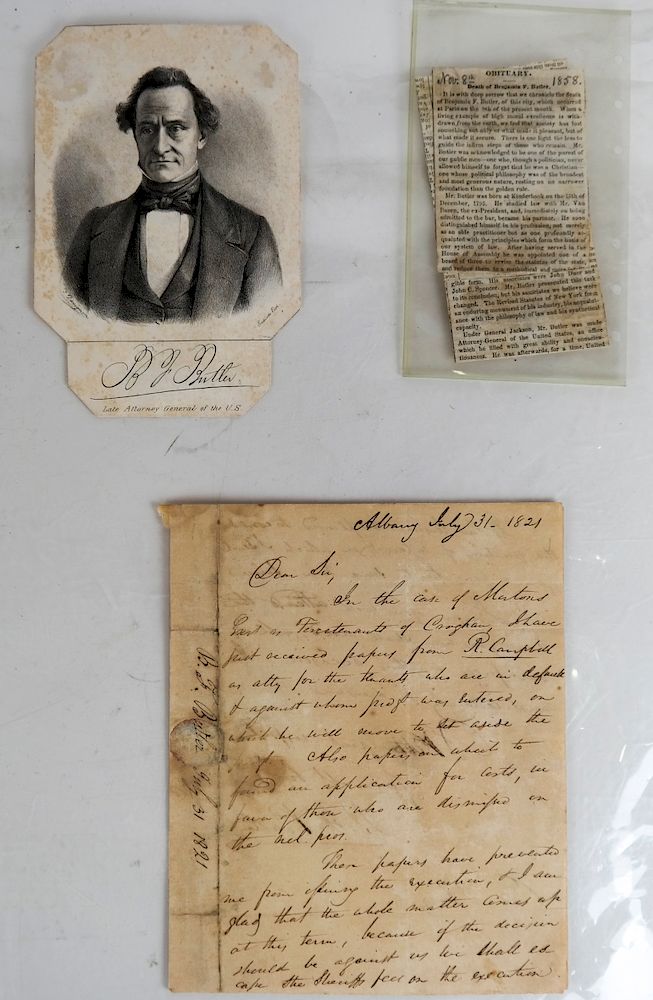 B F Butler
Late Attorney General of the U.S.
Nov. 8th 1858.
OBITUARY.
Death of Benjamin F. Butler.
It is with deep sorrow that we chronicle the death
of Benjamin F. Butler, of this city, which occurred
at Paris on the 8th of the present month. When a
living example of high moral excellence is with-
drawn from the earth, we feel that society has lost
something not only of what made it pleasant, but of
what made it secure. There is one light the less to
guide the infirm steps of those who remain. Mr.
Butler was acknowledged to be one of the purest of
our public men—one who, though a politician, never
allowed himself to forget that he was a Christian—
one whose political philosophy was of the broadest
and most generous nature, resting on no narrower
foundation than the golden rule.
Mr. Butler was born at Kinderhook on the 15th of
December, 1795. He studied law with Mr. Van
Buren, the ex-President, and, immediately on being
admitted to the bar, became his partner. He soon
distinguished himself in his profession, not merely
as an able practitioner but as one profoundly ac-
quainted with the principles which form the basis of
our system of law. After having served in the
House of Assembly he was appointed one of a
board of three to revise the statutes of the state, an
and reduce them to a methodical and more
gible form. His associates were John Duer and
John C. Spencer. Mr. Butler prosecuted this task
to its conclusion, but his associates we believe were
changed. The Revised Statutes of New York form
an enduring monument of his industry, his acquaint-
ance with the philosophy of law and his synthetical
capacity.
Under General Jackson, Mr. Butler was made
Attorney-General of the United States, an office
which he filled with great ability and conscien-
tiousness. He was afterwards, for a time, United
Albany July 31 - 1821
Dear Sir,
In the case of Mertons
vs Terretenants of Croghan, I have
just received papers from R. Campbell
as atty for the tenants who are in default
& against whom judgt was entered, on
which he will move to set aside the
Also papers on which to
found an application for costs, in
favor of those who are dismissed on
the nol. pros.
These papers have prevented
me from issuing the execution, & I am
glad that the whole matter comes up
at this term, because if the decision
should be against us we shall es-
cape the Sheriffs fees on the execution.
B. F. Butler July 31 1821